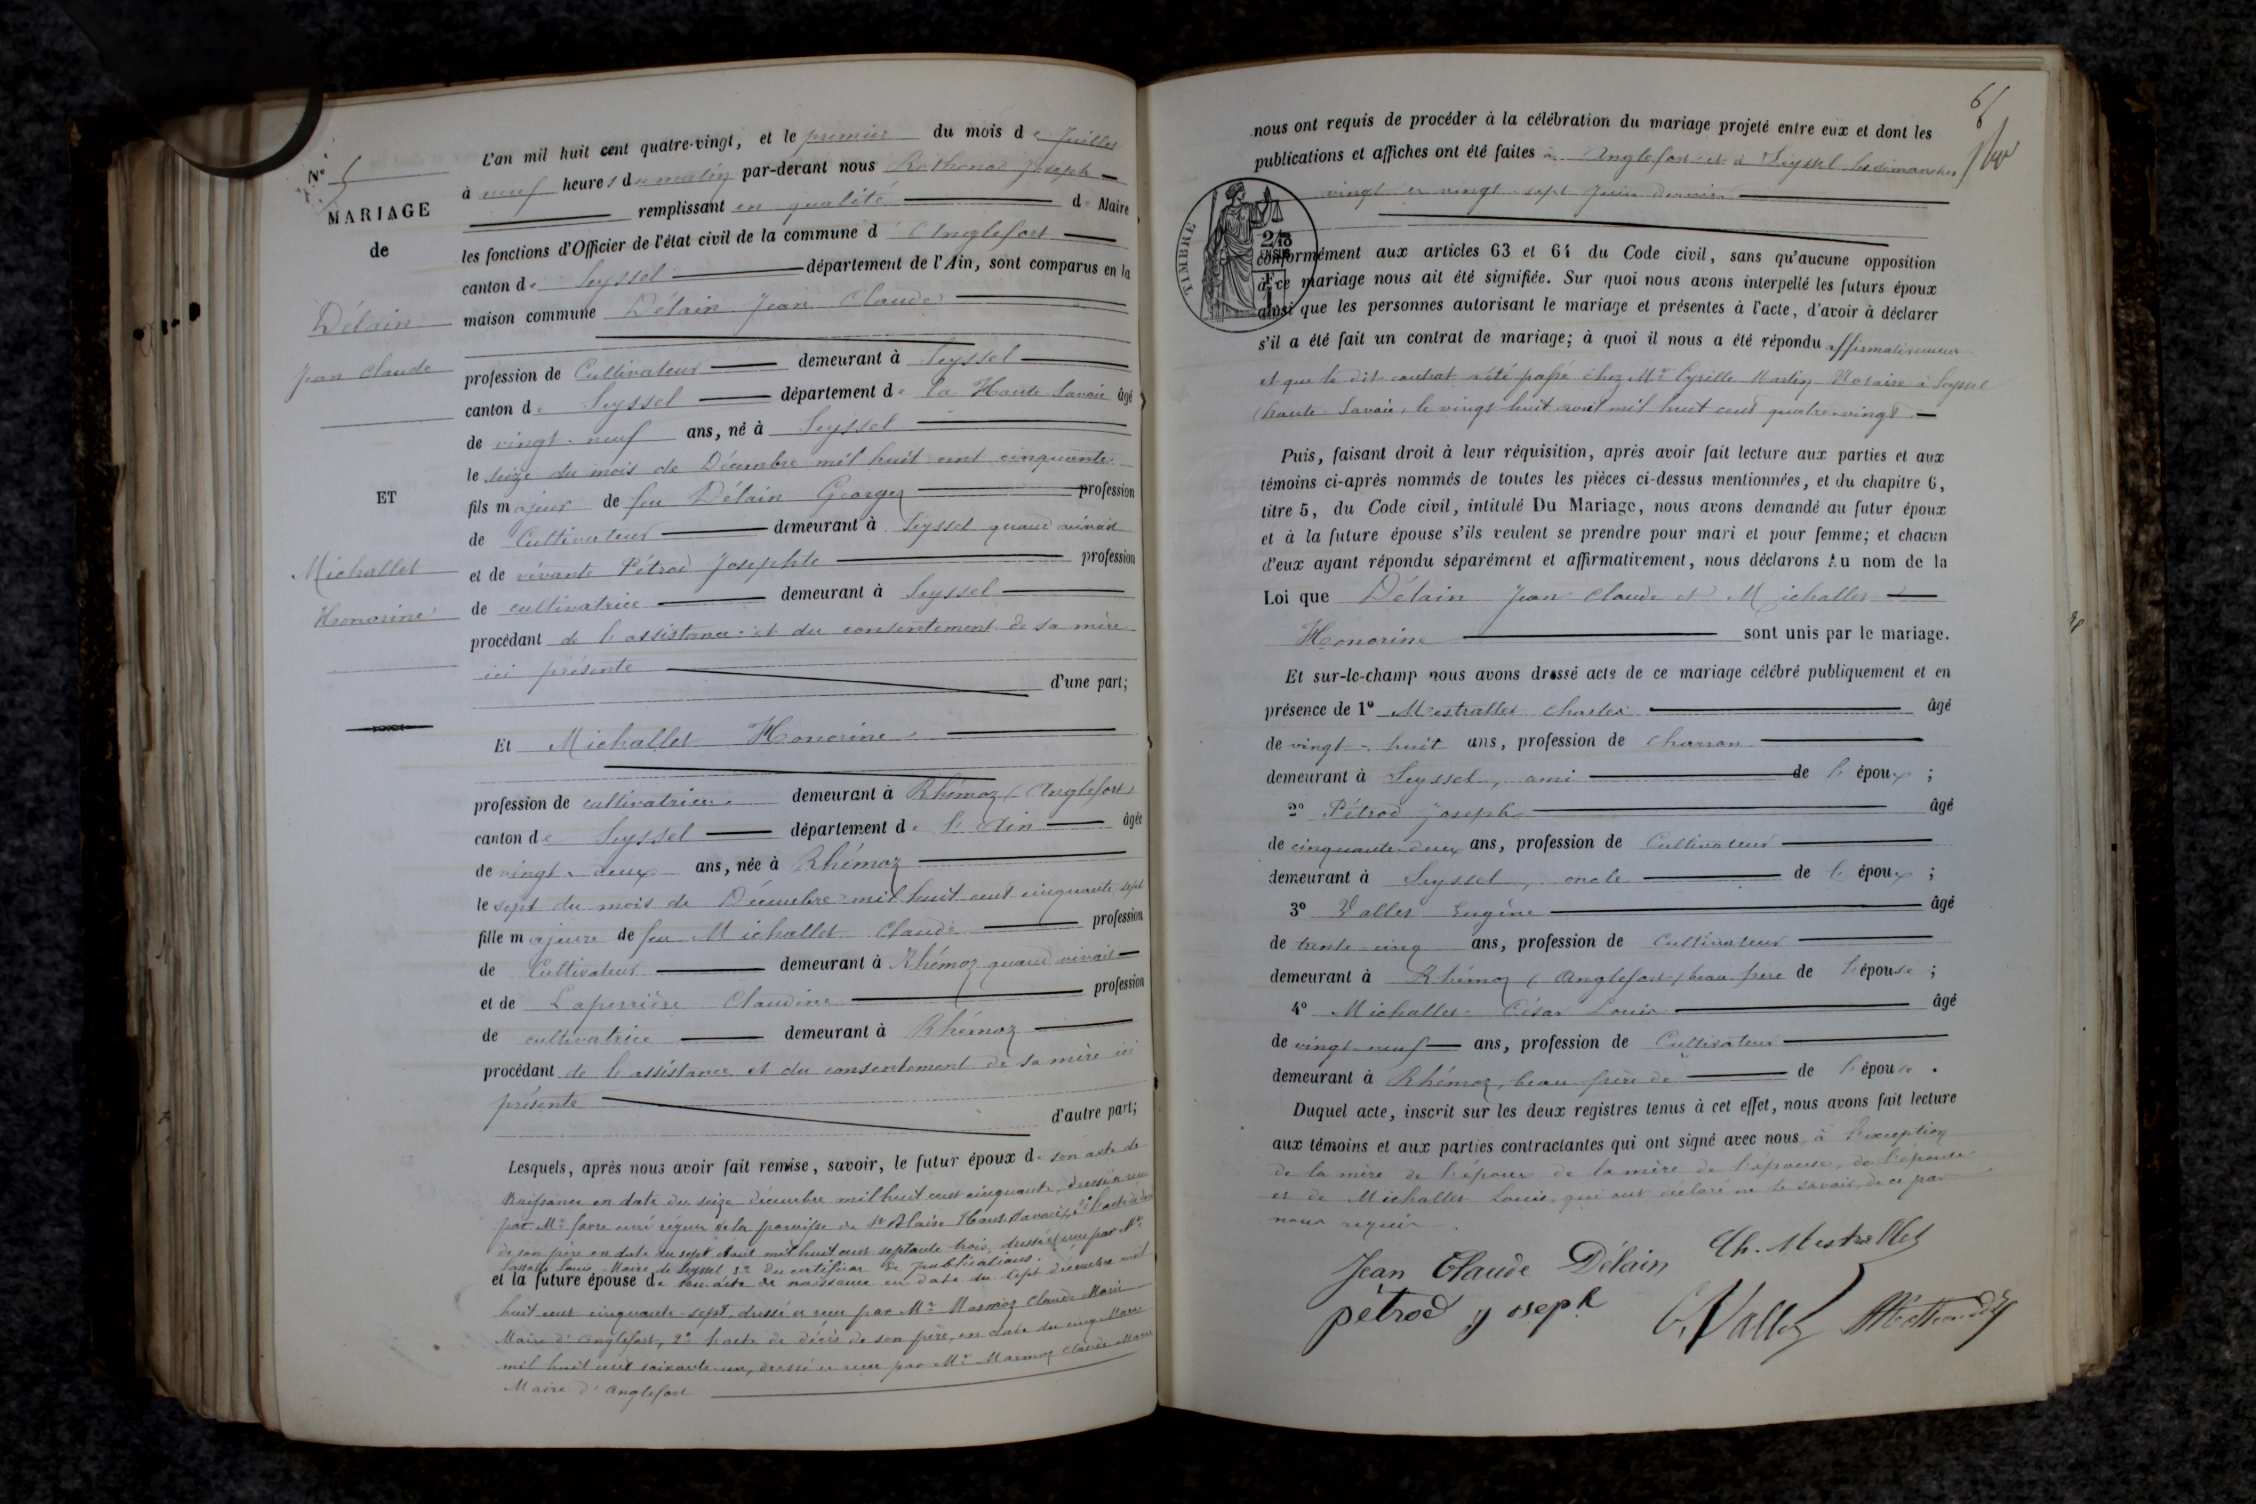 N° 5
MARIAGE
de
Délain
Jean Claude
ET
Michallet
Honorine
L'an mil huit cent quatre-vingt, et le premier du mois de Juillet
à neuf heures du matin par-devant nous Joseph
remplissant en qualité de Maire
les fonctions d'Officier de l'état civil de la commune d'Anglefort
canton de Seyssel département de l'Ain, sont comparus en la
maison commune Délain Jean Claude
profession de Cultivateur demeurant à Seyssel
canton de Seyssel département de la Haute Savoie âgé
de vingt-neuf ans, né à Seyssel
le seize du mois de Décembre mil huit cent cinquante
fils majeur de feu Délain Georges profession
de Cultivateur demeurant à Seyssel quand vivait
et de vivante Pétrod Josephte profession
de cultivatrice demeurant à Seyssel
procédant de l'assistance et du consentement de sa mère
ici présente
d'une part;
Et Michallet Honorine
profession de cultivatrice demeurant à Rhémoz (Anglefort)
canton de Seyssel département de l'Ain âgée
de vingt-deux ans, née à Rhémoz
le sept du mois de Décembre mil huit cent cinquante sept
fille majeure de feu Michallet Claude profession
de Cultivateur demeurant à Rhémoz quand vivait
et de Laperrière Claudine profession
de cultivatrice demeurant à Rhémoz
procédant de l'assistance et du consentement de sa mère ici
présente
d'autre part;
Lesquels, après nous avoir fait remise, savoir, le futur époux de son acte de
Naissance en date du seize décembre mil huit cent cinquante, dressé et reçu
par Mr favre curé régent de la paroisse de St Blaise Haute Savoie, 2° l'acte de décès
de son père en date du sept Août mil huit cent septante trois, dressé et reçu par Mr
Louis Maire de Seyssel 3° du certificat de publications.
et la future épouse de son acte de naissance en date du sept décembre mil
huit cent cinquante-sept dressé et reçu par Mr Marmoz Claude Marie
Maire d'Anglefort, 2° l'acte de décès de son père, en date du cinq Mars
mil huit cent soixante-un, dressé et reçu par Mr Marmoz Claude Marie
Maire d'Anglefort
6
nous ont requis de procéder à la célébration du mariage projeté entre eux et dont les
publications et affiches ont été faites à Anglefort et à Seyssel les dimanches
vingt et vingt-sept Juin dernier
TIMBRE
conformément aux articles 63 et 64 du Code civil, sans qu'aucune opposition
à ce mariage nous ait été signifiée. Sur quoi nous avons interpellé les futurs époux
ainsi que les personnes autorisant le mariage et présentes à l'acte, d'avoir à déclarer
s'il a été fait un contrat de mariage; à quoi il nous a été répondu affirmativement
et que le dit contrat a été passé chez Mr Cyrille Martin Notaire à Seyssel
(haute-Savoie, le vingt huit avril mil huit cent quatre-vingt
Puis, faisant droit à leur réquisition, après avoir fait lecture aux parties et aux
témoins ci-après nommés de toutes les pièces ci-dessus mentionnées, et du chapitre 6,
titre 5, du Code civil, intitulé Du Mariage, nous avons demandé au futur époux
et à la future épouse s'ils veulent se prendre pour mari et pour femme; et chacun
d'eux ayant répondu séparément et affirmativement, nous déclarons Au nom de la
Loi que Délain Jean Claude et Michallet
Honorine sont unis par le mariage.
Et sur-le-champ nous avons dressé acte de ce mariage célébré publiquement et en
présence de 1° Mestrallet Charles âgé
de vingt-huit ans, profession de charron
demeurant à Seyssel, ami de l'époux ;
2° Pétrod Joseph âgé
de cinquante-deux ans, profession de Cultivateur
demeurant à Seyssel, oncle de l'époux ;
3° Vallet Eugène âgé
de trente cinq ans, profession de Cultivateur
demeurant à Rhémoz (Anglefort) beau frère de l'épouse ;
4° Michallet César Louis âgé
de vingt neuf ans, profession de Cultivateur
demeurant à Rhémoz, beau-frère de de l'épouse .
Duquel acte, inscrit sur les deux registres tenus à cet effet, nous avons fait lecture
aux témoins et aux parties contractantes qui ont signé avec nous à l'exception
de la mère de l'époux de la mère de l'épouse, de l'épouse
et de Michallet Louis qui ont déclaré ne le savoir, de ce par
nous requis.
Jean Claude Délain Ch. Mestrallet
pétrod joseph E. Vallet